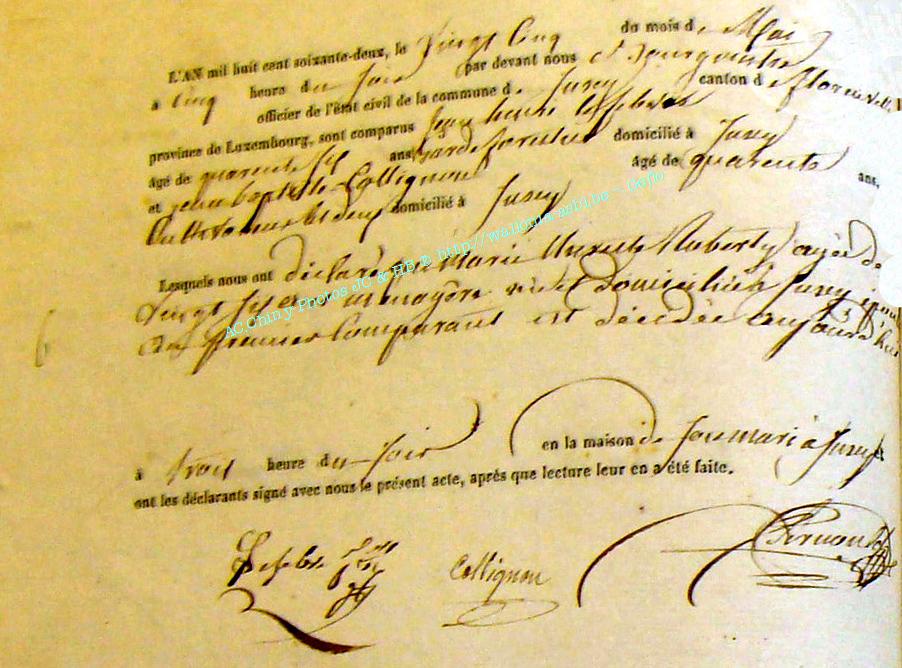 L'AN mil huit cent soixante-deux, le vingt cinq du mois de Mai
à cinq heure du soir par devant nous
officier de l'état civil de la commune de Jusey canton de florenville,
province de Luxembourg, sont comparus Jean henri lefebvre
âgé de quarente six ans garde forestier domicilié à Jusey
et jean baptiste Collignon âgé de quarente ans,
Cultivateur domicilié à Jusey
Lesquels nous ont déclaré que Marie Ruberty agée de
vingt sept ménagère née et Domiciliée à Jusey épouse
du premier Comparant est décédée aujourd'hui
à trois heure du soir en la maison de son mari à Jusey
ont les déclarants signé avec nous le présent acte, après que lecture leur en a été faite.
Lefebvre
Collignon
AC Chiny Photos JC & HB © http://wallonia-asbl.be - Gefio